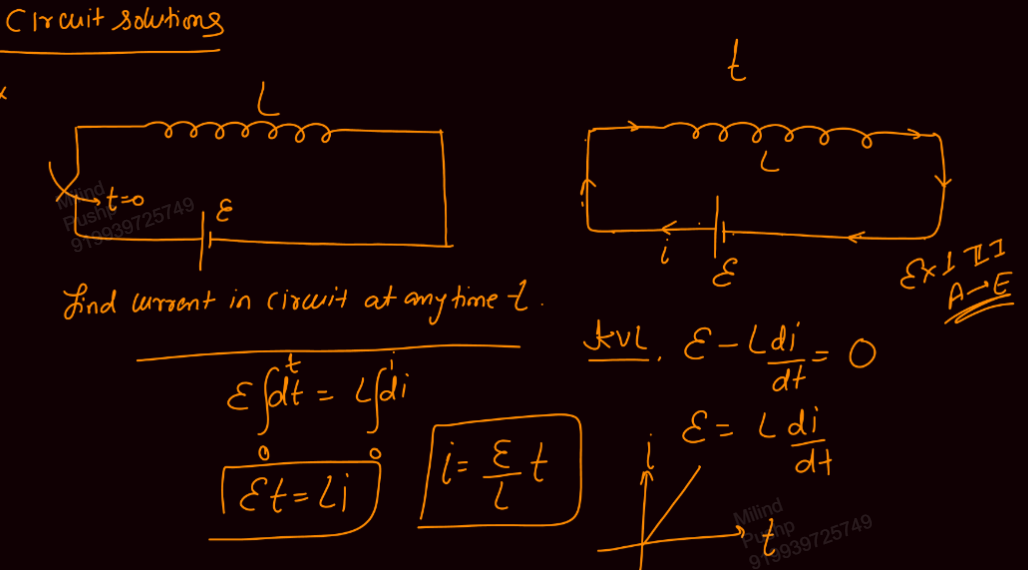 Circuit solutions
L
t=0
ε
Milind
Pushp
919939725749
find current in circuit at any time t.
ε∫₀ᵗ dt = L∫₀ⁱ di
εt = Li
i = ε/L t
t
L
i
ε
A→E
KVL. ε - L di/dt = 0
ε = L di/dt
i
t
Milind
Pushp
919939725749